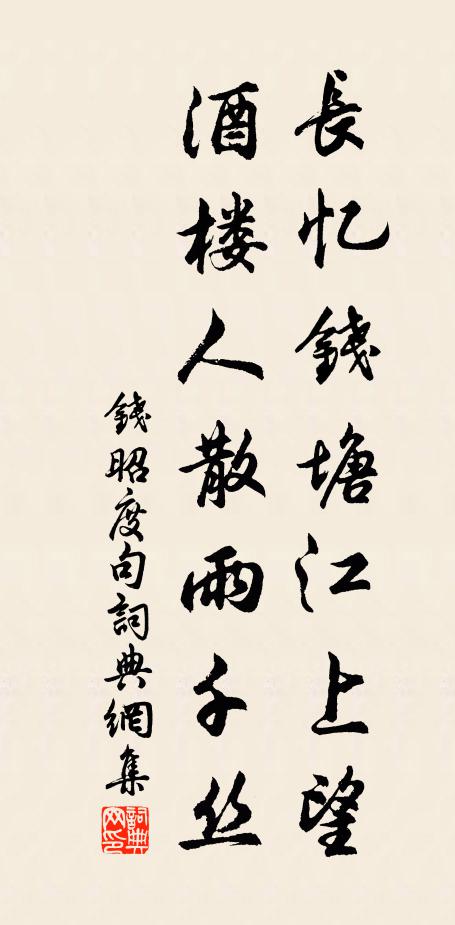 長忆錢塘江上望
酒楼人散雨千丝
錢昭度句詞典網集
詞典網印